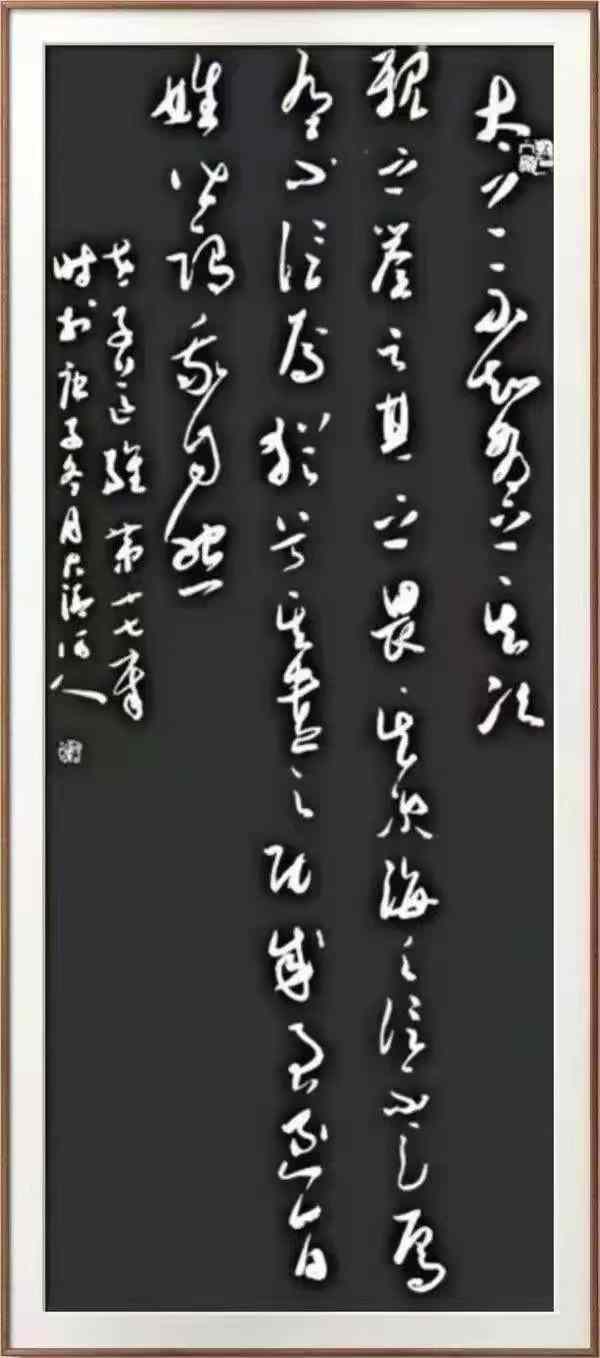 太上不知有之其次
親之譽之其次畏之其次侮之信不足焉
有不信焉猶兮其貴言功成事遂百
姓皆謂我自然
老子道經第十七章
時於庚子冬月大清河人